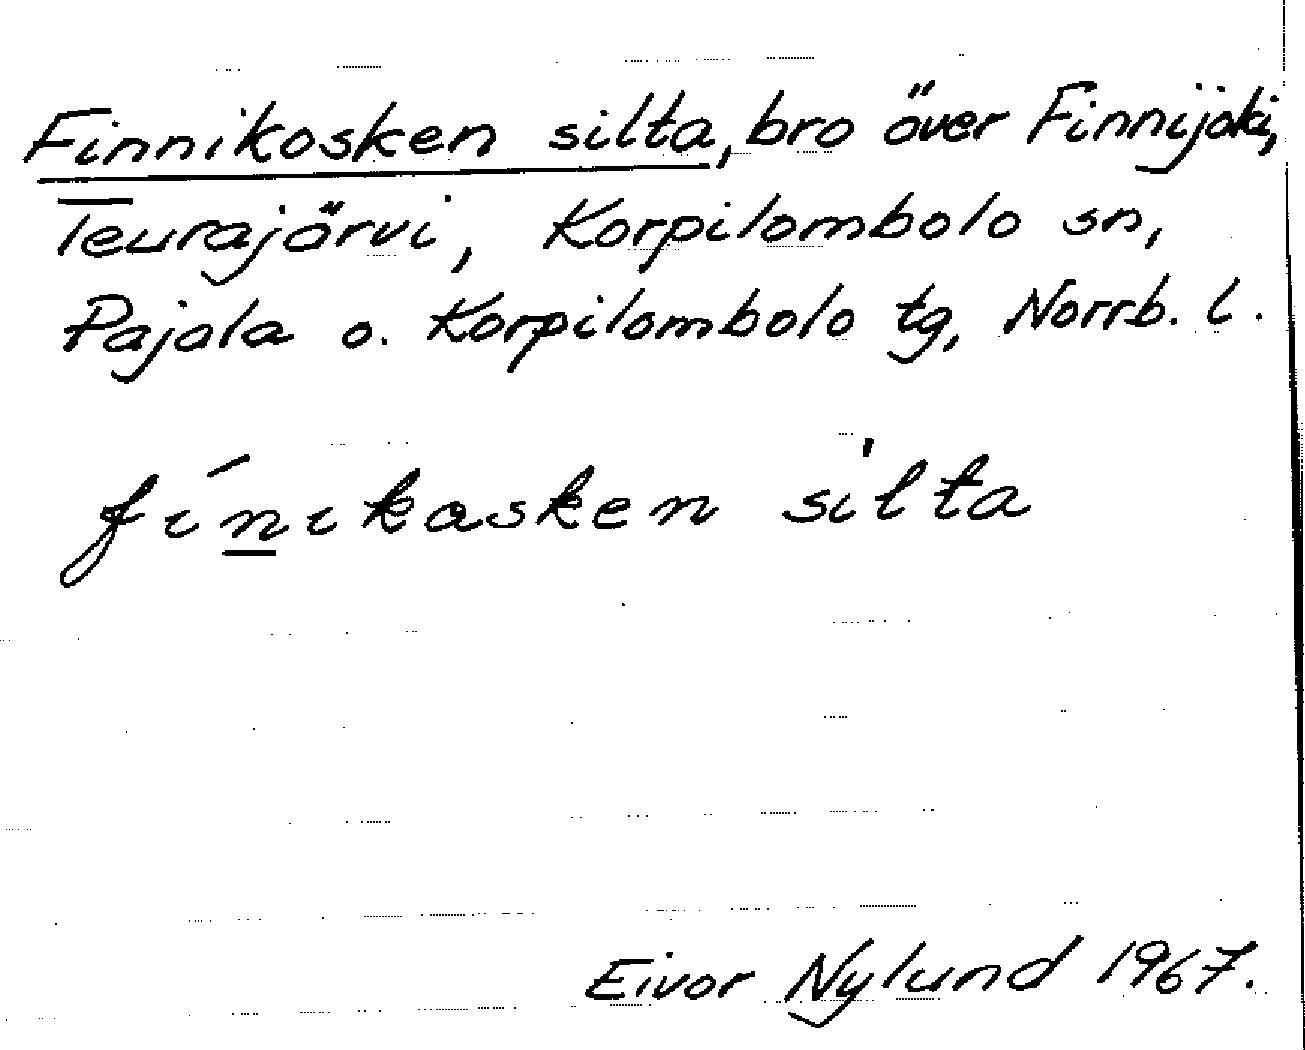 Finnikosken silta, bro över Finnijoki,
Teurajärvi, Korpilombolo sn,
Pajala o. Korpilombolo tg, Norrb. l.
fíni̱kasken sìlta
Eivor Nylund 1967.